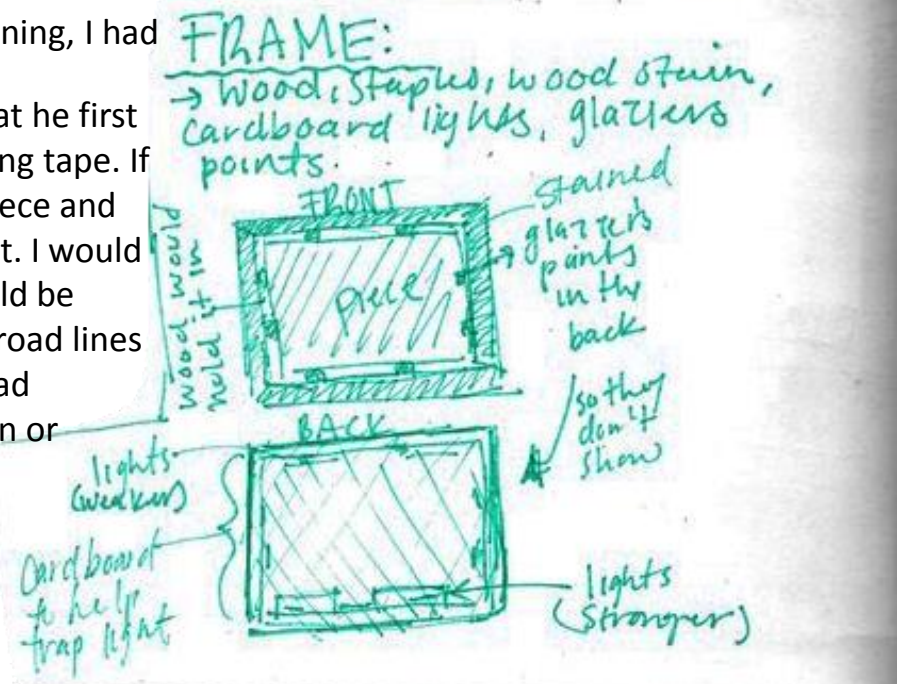 ning, I had
at he first
ng tape. If
ece and
t. I would
ld be
road lines
ad
n or
FRAME:
→ Wood, Staples, wood stain,
cardboard lights, glaziers
points.
FRONT
stained
glazier's
points
in the
back
so they
don't
show
piece
wood would
hold it in
BACK
lights
(weaker)
Cardboard
to help
trap light
lights
(stronger)